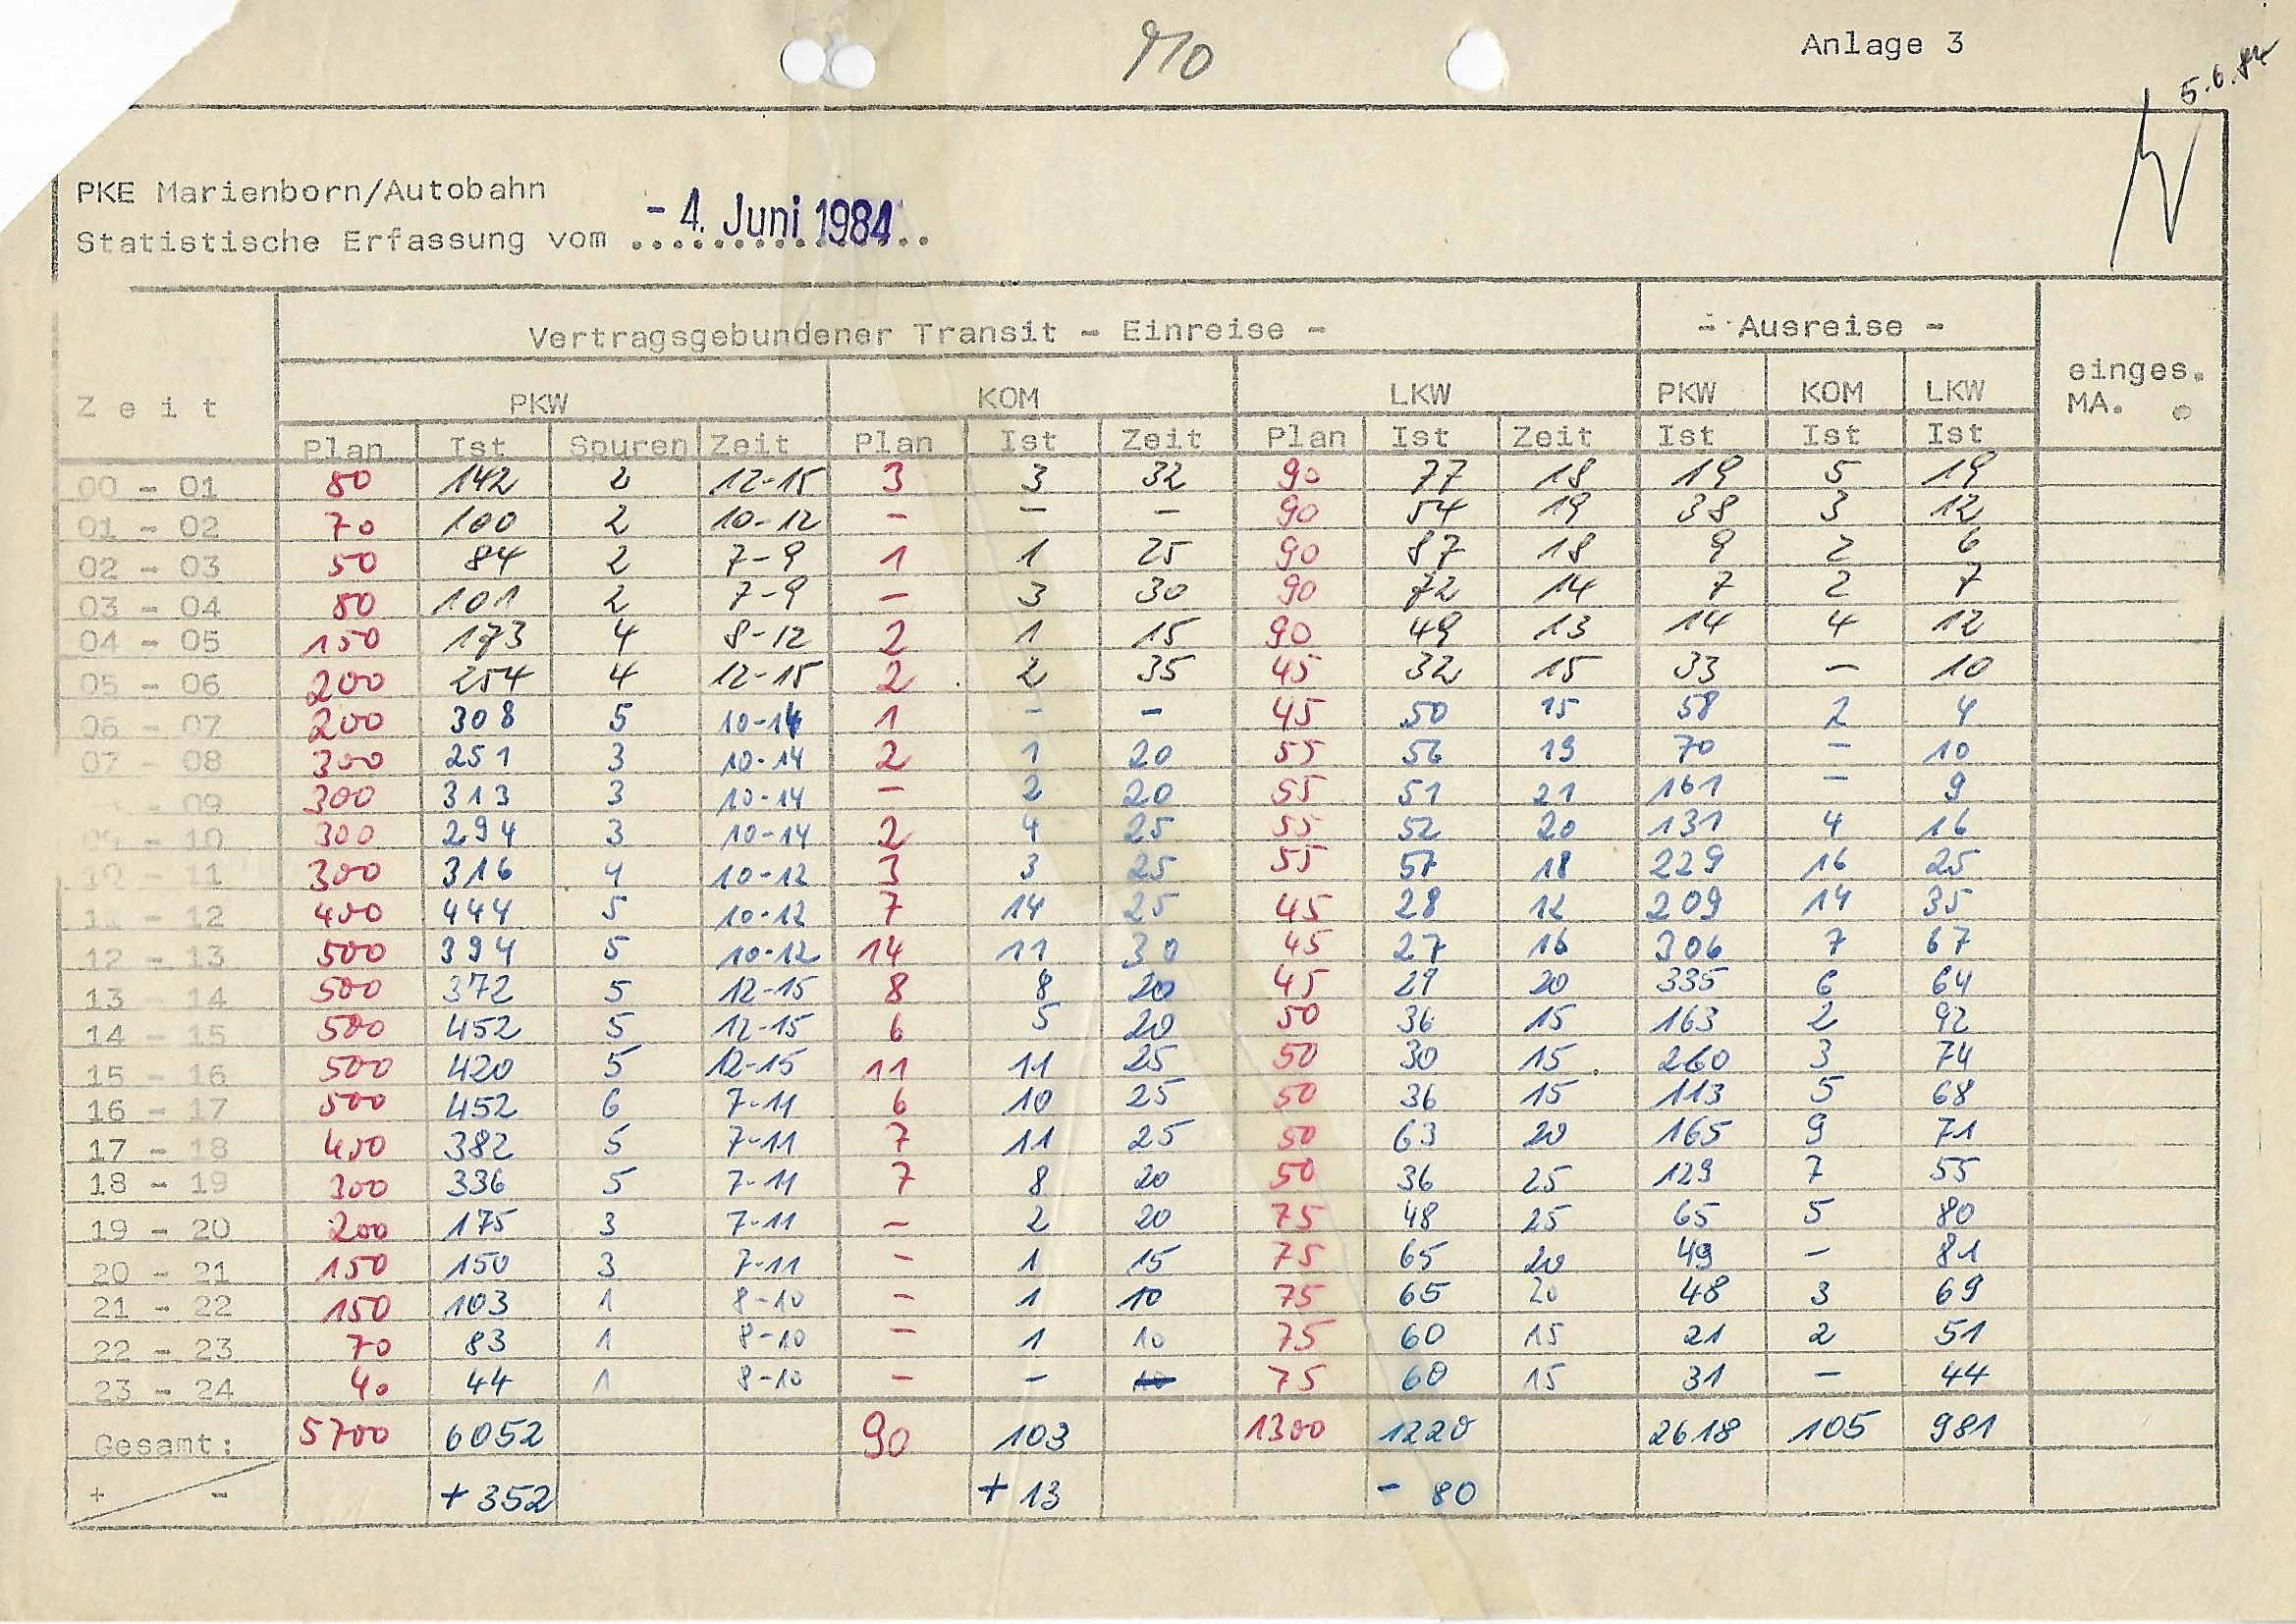 910
Anlage 3
5.6.84
PKE Marienborn/Autobahn
Statistische Erfassung vom - 4. Juni 1984
Vertragsgebundener Transit - Einreise - - Ausreise -
Z e i t PKW KOM LKW PKW KOM LKW einges. MA.
Plan Ist Spuren Zeit Plan Ist Zeit Plan Ist Zeit Ist Ist Ist
00 - 01 80 142 2 12-15 3 3 32 90 77 18 19 5 19
01 - 02 70 100 2 10-12 - - - 90 54 19 38 3 12
02 - 03 50 84 2 7-9 1 1 25 90 87 18 9 2 6
03 - 04 80 101 2 7-9 - 3 30 90 72 14 7 2 7
04 - 05 150 173 4 8-12 2 1 15 90 49 13 14 4 12
05 - 06 200 254 4 12-15 2 2 35 45 32 15 33 - 10
06 - 07 200 308 5 10-14 1 - - 45 50 15 58 2 4
07 - 08 300 251 3 10-14 2 1 20 55 56 19 70 - 10
- 09 300 313 3 10-14 - 2 20 55 51 21 161 - 9
09 - 10 300 294 3 10-14 2 4 25 55 52 20 131 4 16
10 - 11 300 316 4 10-12 3 3 25 55 57 18 229 16 25
11 - 12 400 444 5 10-12 7 14 25 45 28 12 209 14 35
12 - 13 500 394 5 10-12 14 11 30 45 27 16 306 7 67
13 - 14 500 372 5 12-15 8 8 20 45 29 20 335 6 64
14 - 15 500 452 5 12-15 6 5 20 50 36 15 163 2 92
15 - 16 500 420 5 12-15 11 11 25 50 30 15 260 3 74
16 - 17 500 452 6 7-11 6 10 25 50 36 15 113 5 68
17 - 18 400 382 5 7-11 7 11 25 50 63 20 165 9 71
18 - 19 300 336 5 7-11 7 8 20 50 36 25 129 7 55
19 - 20 200 175 3 7-11 - 2 20 75 48 25 65 5 80
20 - 21 150 150 3 7-11 - 1 15 75 65 20 49 - 81
21 - 22 150 103 1 8-10 - 1 10 75 65 20 48 3 69
22 - 23 70 83 1 8-10 - 1 10 75 60 15 21 2 51
23 - 24 40 44 1 8-10 - - 75 60 15 31 - 44
Gesamt: 5700 6052 90 103 1300 1220 2618 105 981
+ - + 352 + 13 - 80